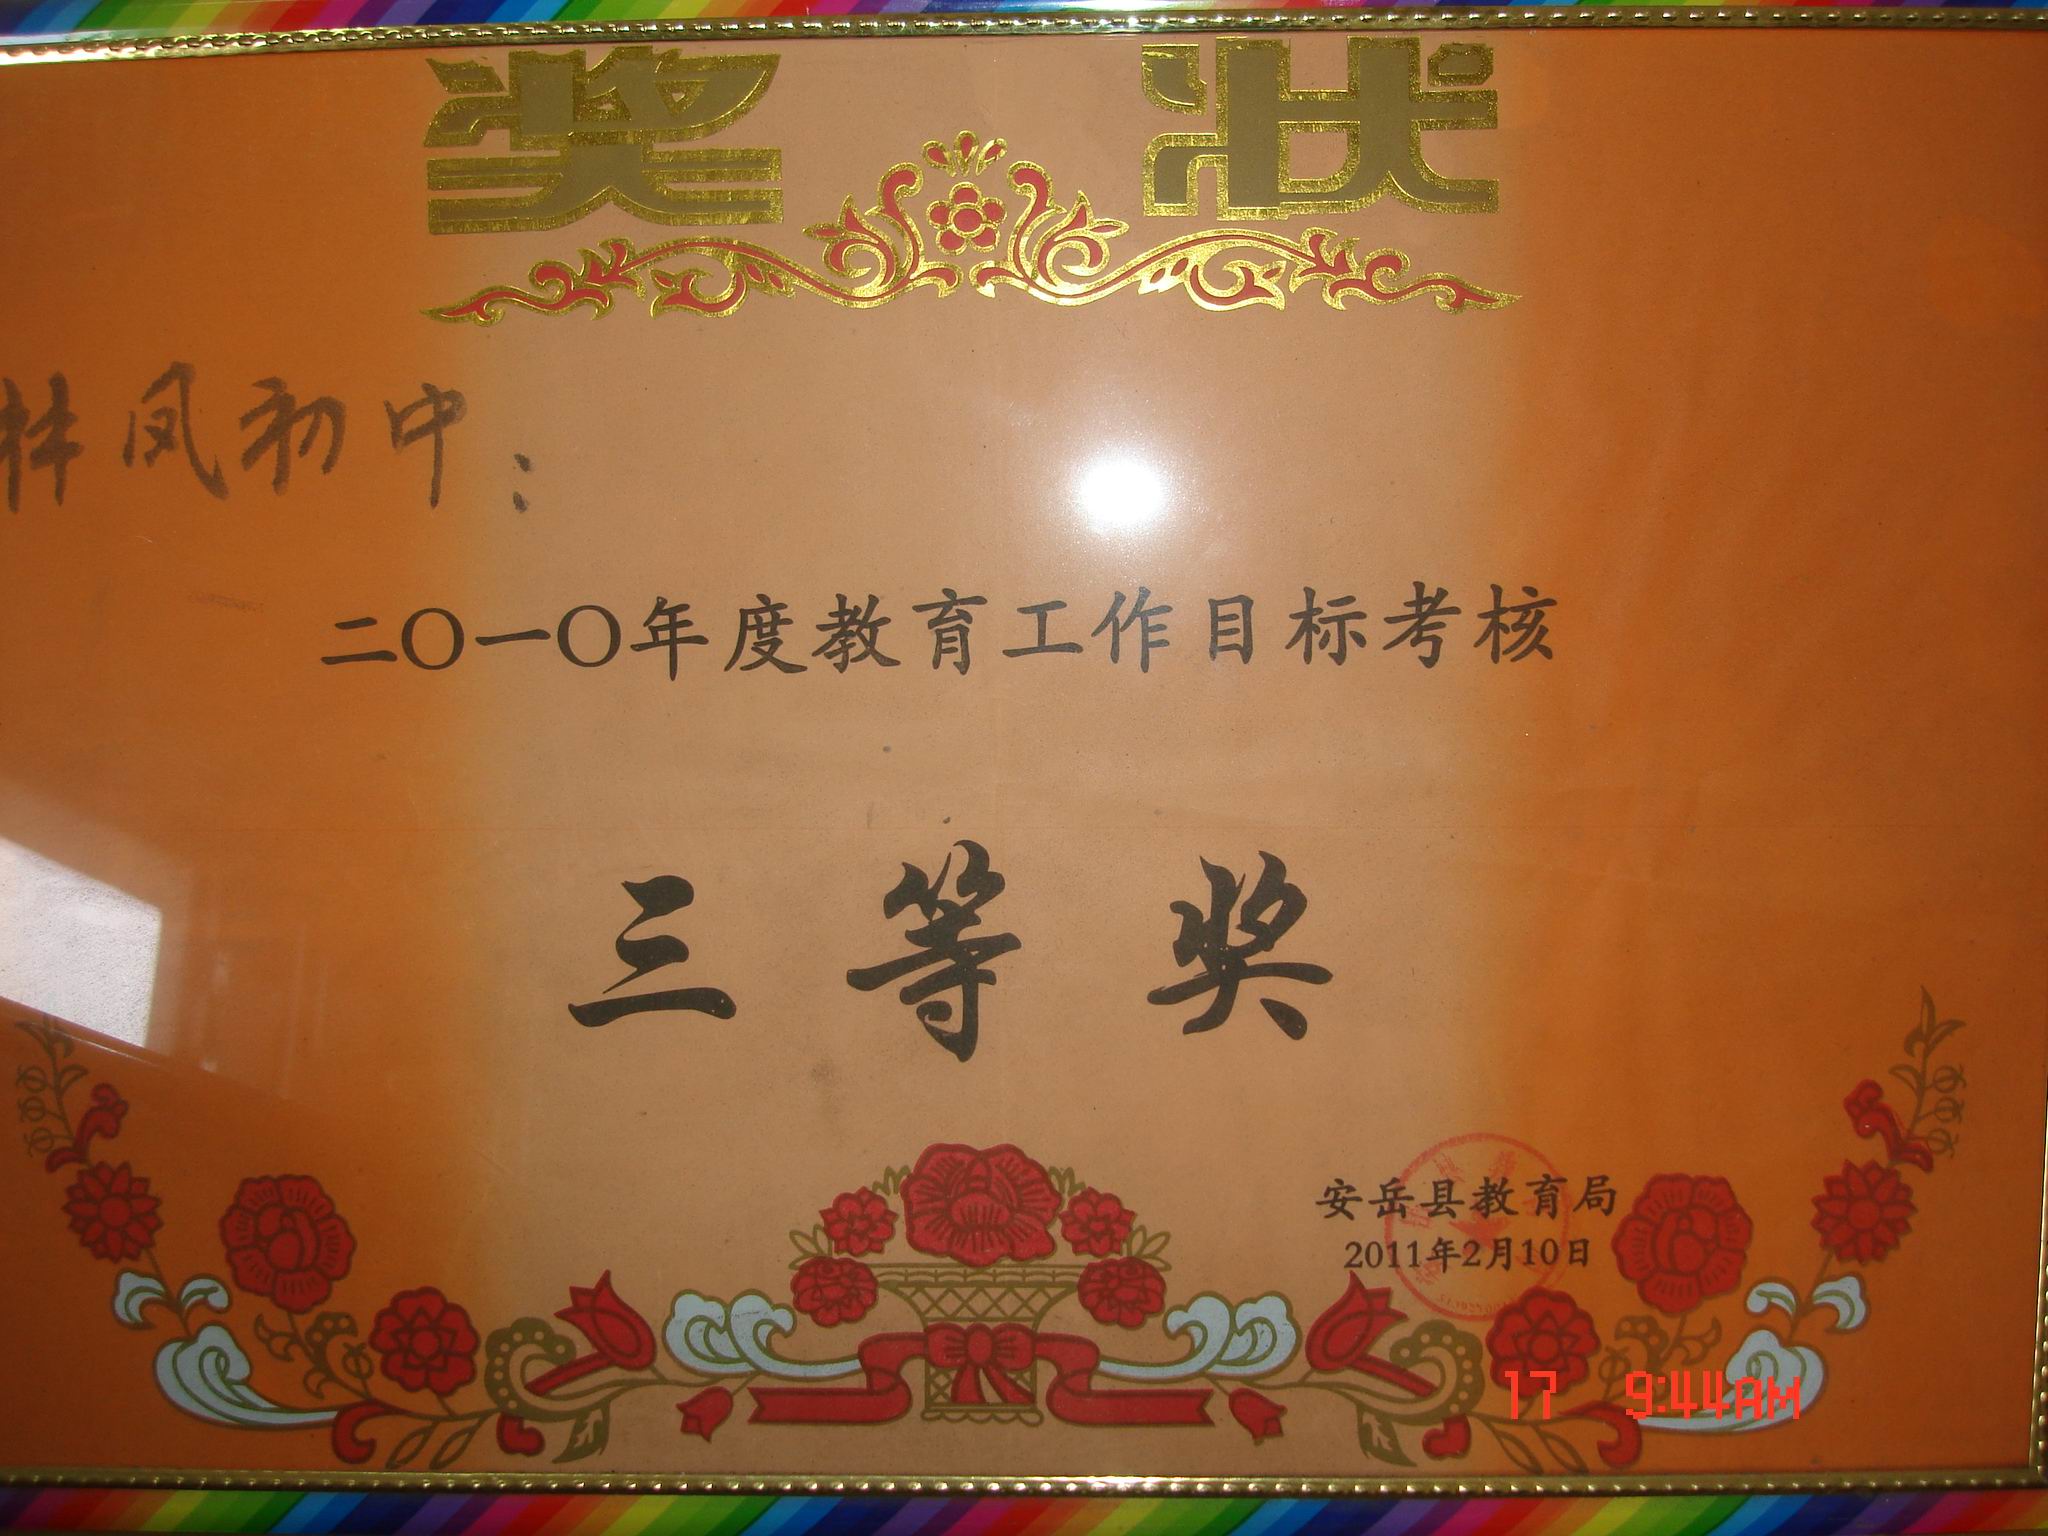 奖状
林凤初中：
二〇一〇年度教育工作目标考核
三等奖
安岳县教育局
2011年2月10日
17 9:44AM